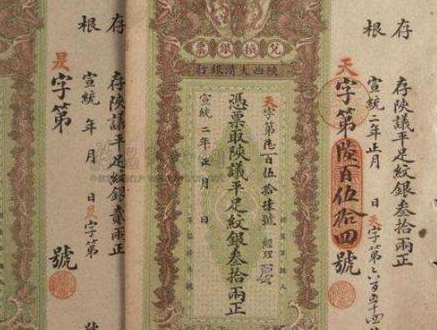 存根
存陝議平足紋銀叁拾兩正
宣統二年正月 日 天字第六百五十四
天字第陸百伍拾四號
兌換銀票
陝西大清銀行
天字第陸百伍拾肆號 經理
憑票取陝議平足紋銀叁拾兩正
宣統二年正月 日
存根
存陝議平足紋銀貳兩正
宣統 年 月 日 字第 號
字第 號